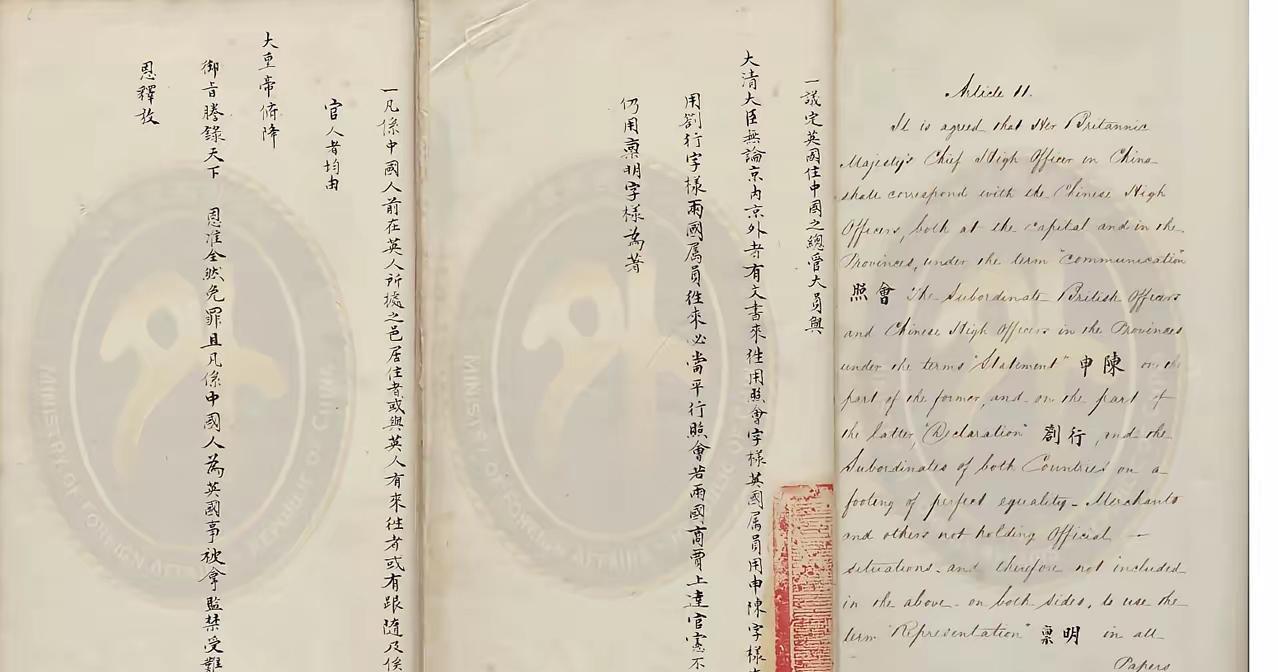 Article 11.
It is agreed that Her Britannic
Majesty's Chief High Officer in China
shall correspond with the Chinese High
Officers, both at the capital and in the
Provinces, under the term "Communication"
照會 The Subordinate British Officers
and Chinese High Officers in the Provinces
under the terms "Statement" 申陳 on the
part of the former, and on the part of
the latter "Declaration" 劄行, and the
Subordinates of both Countries on a
footing of perfect equality - Merchants
and others not holding Official —
situations, and therefore not included
in the above, on both sides, to use the
term "Representation" 稟明 in all
Papers
一議定英國住中國之總管大員與
大清大臣無論京內京外者有文書來往用照會字樣英國属員用申陳字樣
用劄行字樣兩國属員往來必當平行照會若兩國商賈上達官憲不
仍用稟明字樣為著
一凡係中國人前在英人所據之邑居住者或與英人有來往者或有跟隨及俟
官人者均由
大皇帝俯降
御旨謄錄天下 恩准全然免罪且凡係中國人為英國事被拿監禁受難
恩釋放
MINISTRY OF FOREIGN AFFAIRS REPUBLIC OF CHINA
MINISTRY OF FOREIGN AFFAIRS